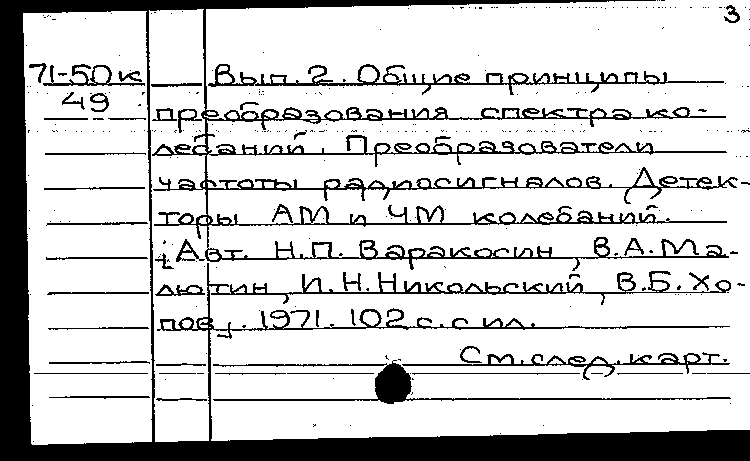 3
71-50к Вып. 2. Общие принципы
49
преобразования спектра ко-
лебаний. Преобразователи
частоты радиосигналов. Детек-
торы АМ и ЧМ колебаний.
[Авт. Н.П. Варакосин, В.А. Ма-
лютин, И.Н. Никольский, В.Б. Хо-
пов]. 1971. 102 с. с ил.
См. след. карт.